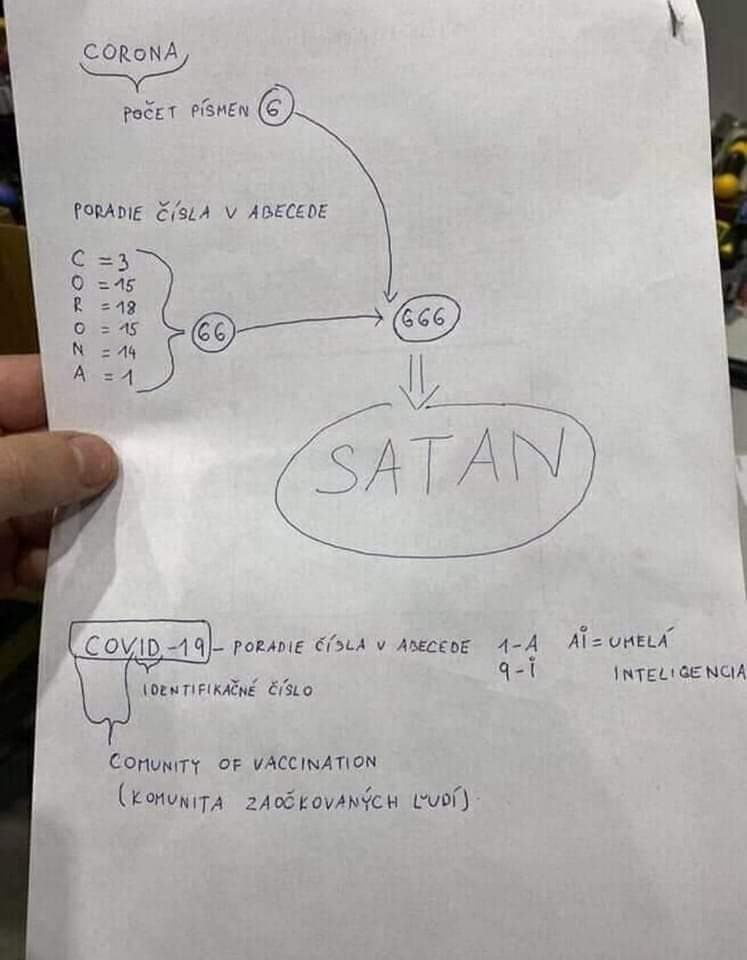 CORONA
POČET PÍSMEN 6
PORADIE ČÍSLA V ABECEDE
C = 3
O = 15
R = 18
O = 15
N = 14
A = 1
66
666
SATAN
COVID-19 – PORADIE ČÍSLA V ABECEDE 1-A AI = UMELÁ
9-I INTELIGENCIA
IDENTIFIKAČNÉ ČÍSLO
COMUNITY OF VACCINATION
(KOMUNITA ZAOČKOVANÝCH ĽUDÍ)